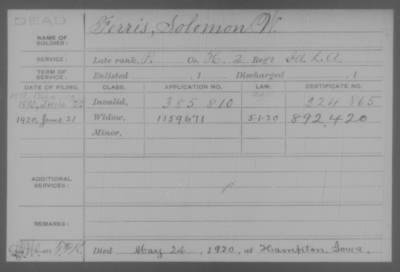 DEAD
NAME OF SOLDIER: Ferris, Solomon W.
SERVICE: Late rank, P. Co. H. 2 Reg't Ill. L. A.
TERM OF SERVICE: Enlisted , 1 Discharged , 1
DATE OF FILING. CLASS. APPLICATION NO. LAW. CERTIFICATE NO.
Invalid, 385 810 224 865
1920, June 21 Widow, 1159671 5-1-20 892,420
Minor,
ADDITIONAL SERVICES:
REMARKS:
Died May 24, 1920, at Hampton, Iowa.